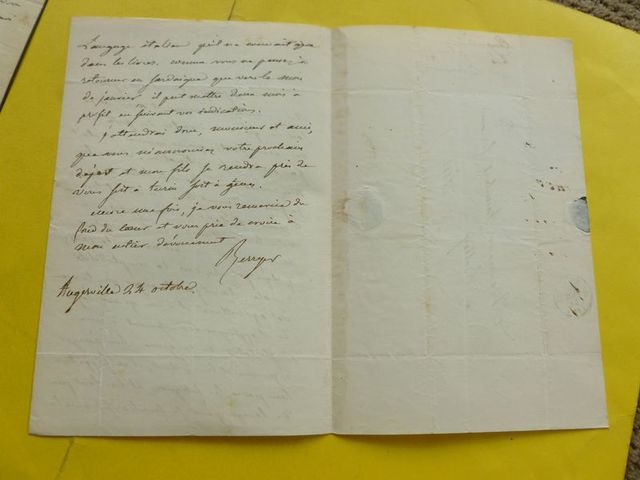 langage italien qu'il ne connait que
dans les livres. comme vous ne pensez à
retourner en Sardaigne que vers le mois
de janvier il peut mettre deux mois à
profit en suivant vos indications.
J'attendrai donc, monsieur et ami
que vous m'annonciez votre prochain
départ et mon fils se rendra près de
vous soit à turin soit à gênes.
encore une fois, je vous remercie du
fond du cœur et vous prie de croire à
mon entier dévouement
Berryer
Augerville 24 octobre.